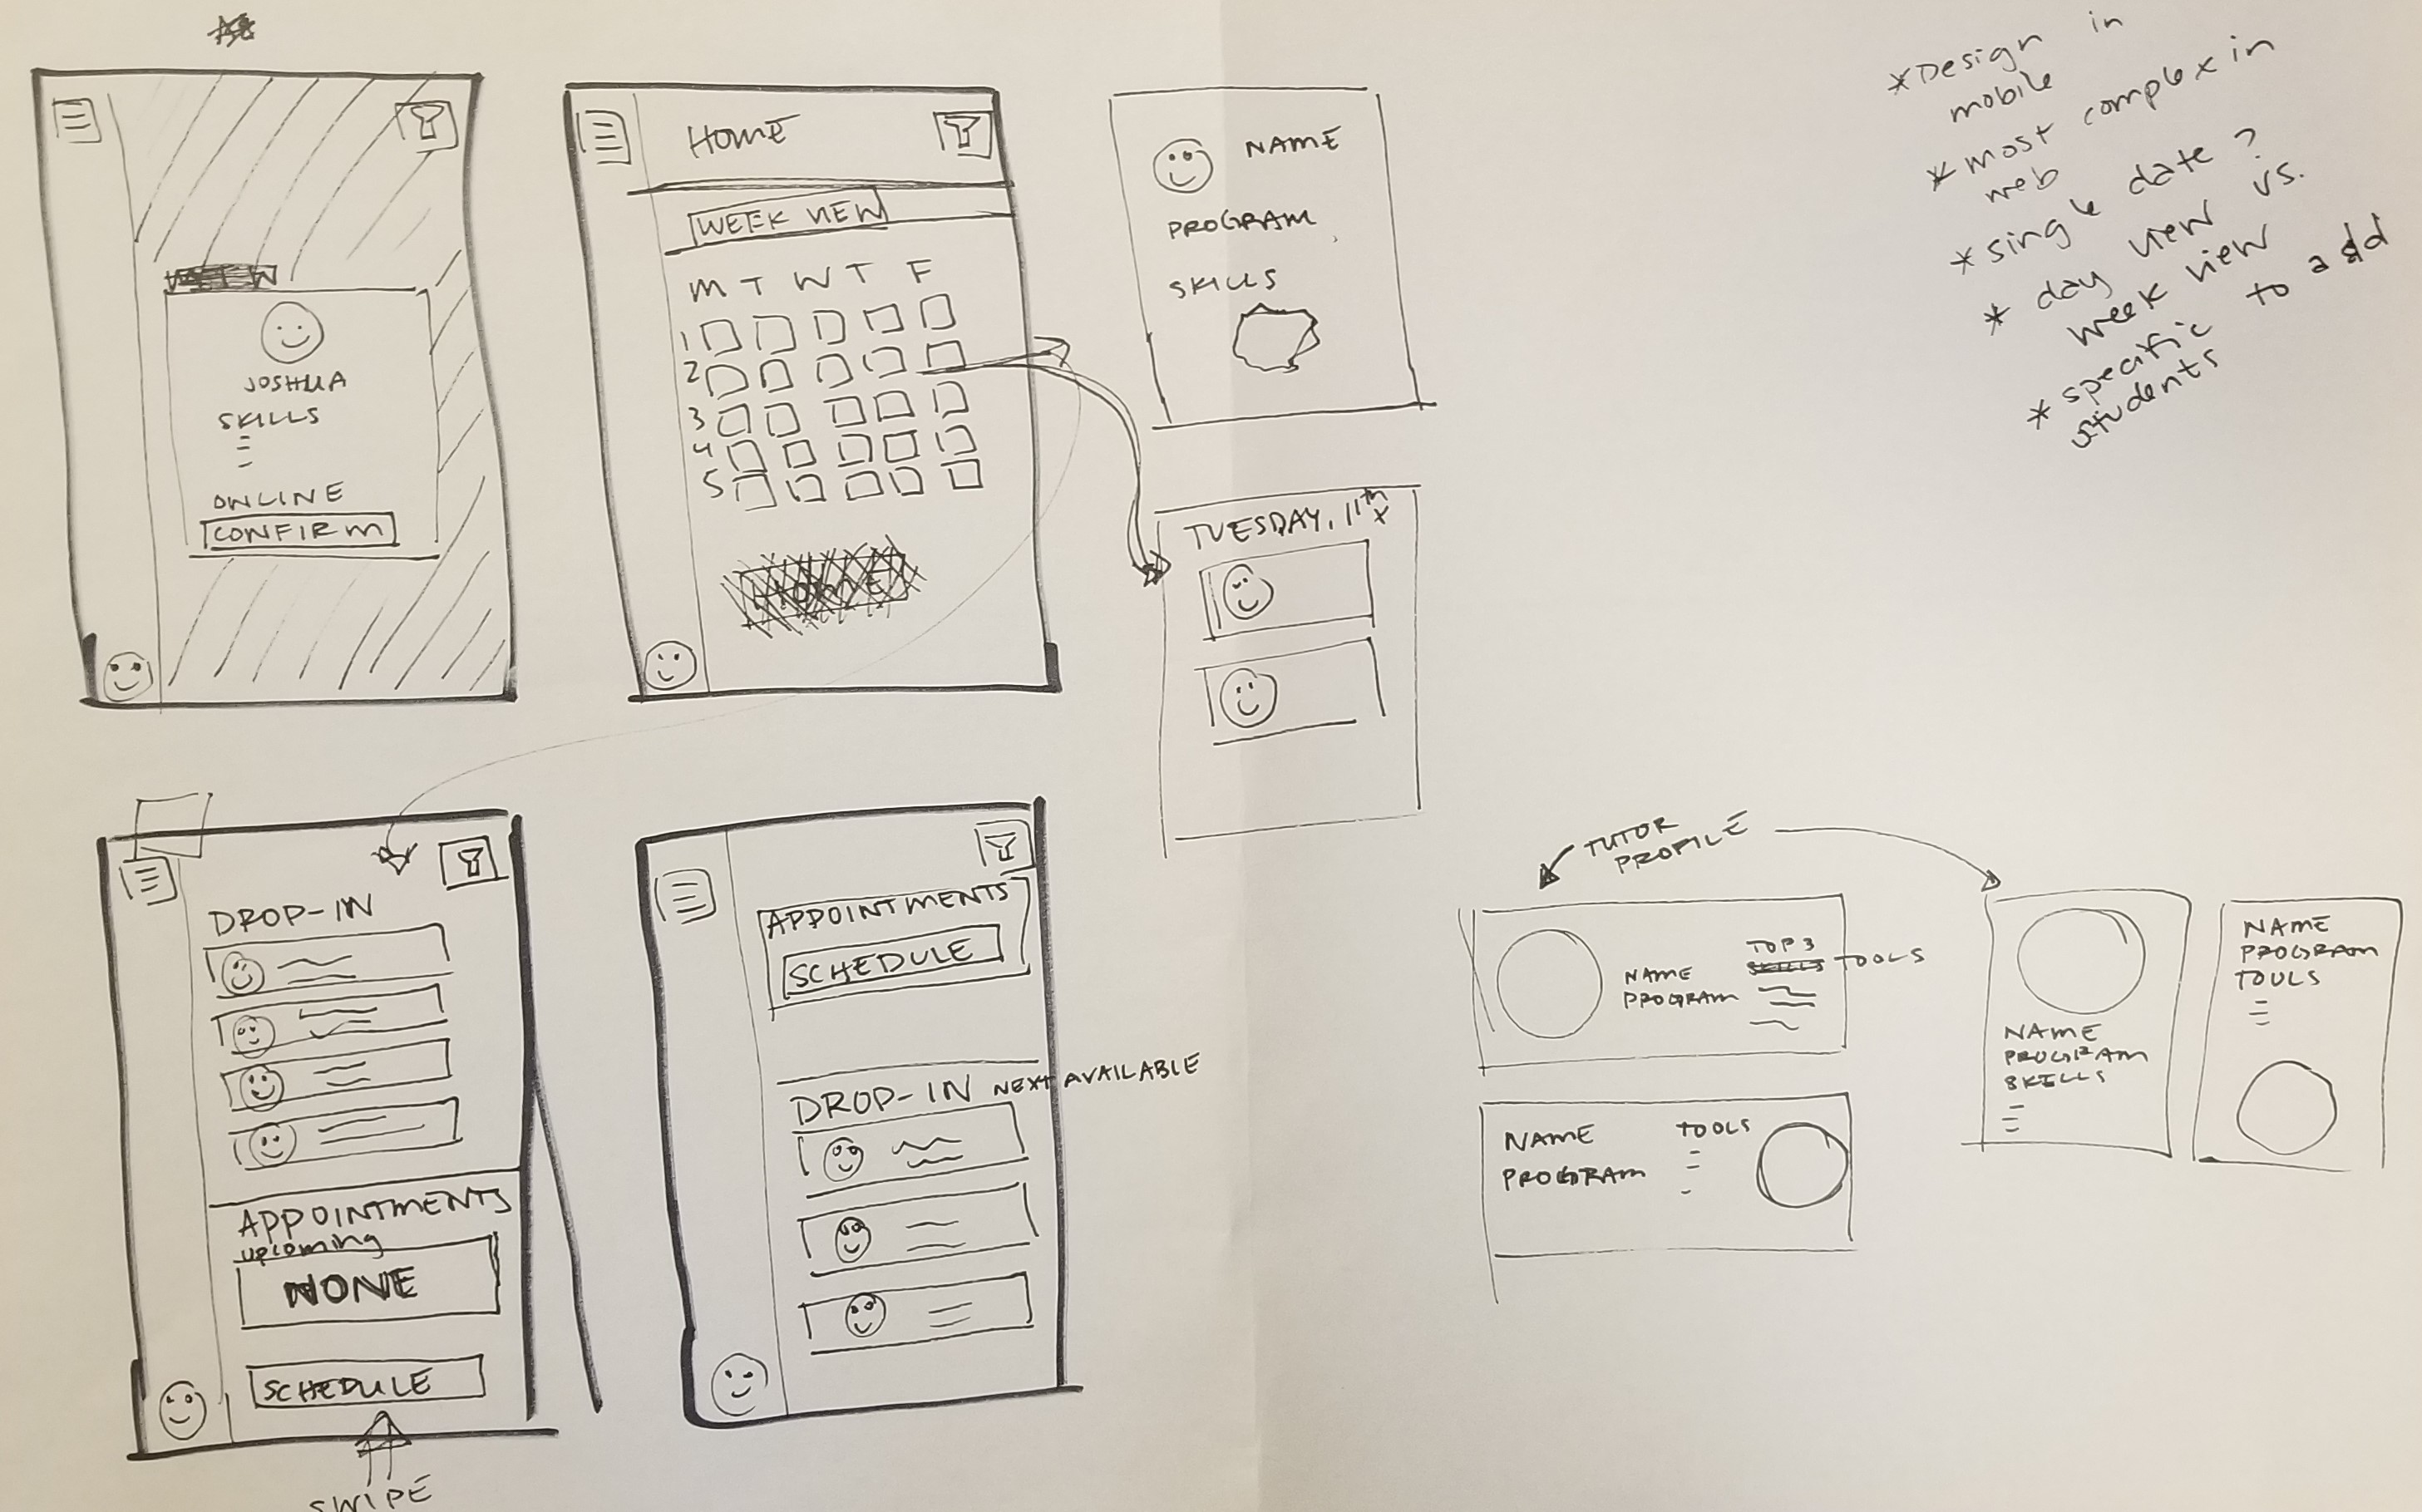 JOSHUA
SKILLS
ONLINE
CONFIRM
HOME
WEEK VIEW
M T W T F
1
2
3
4
5
NAME
PROGRAM
SKILLS
TUESDAY, 11th
x
* Design in in
mobile
* most complex in
web
* single date?
* day view vs.
week view
* specific to add
students
DROP-IN
APPOINTMENTS
upcoming
NONE
SCHEDULE
SWIPE
APPOINTMENTS
SCHEDULE
DROP-IN NEXT AVAILABLE
TUTOR
PROFILE
NAME
PROGRAM
TOP 3
SKILLS TOOLS
NAME
PROGRAM
TOOLS
NAME
PROGRAM
SKILLS
NAME
PROGRAM
TOOLS